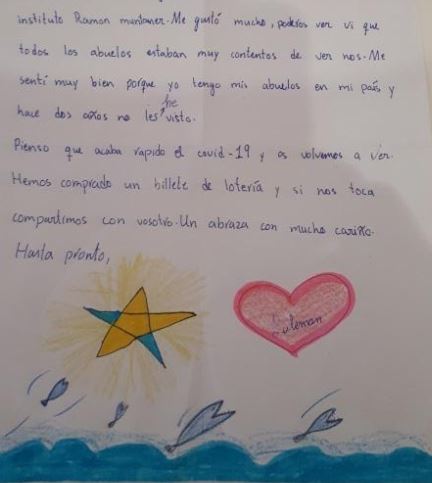 instituto Ramon muntaner. Me gustó mucho, poderos ver vi que
todos los abuelos estaban muy contentos de ver nos. Me
sentí muy bien porque yo tengo mis abuelos en mi país y
hace dos años no les he visto.
Pienso que acaba rapido el covid-19 y os volvemos a ver.
Hemos comprado un billete de lotería y si nos toca
compartimos con vosotro. Un abraza con mucho cariño.
Hasta pronto,
Suleman